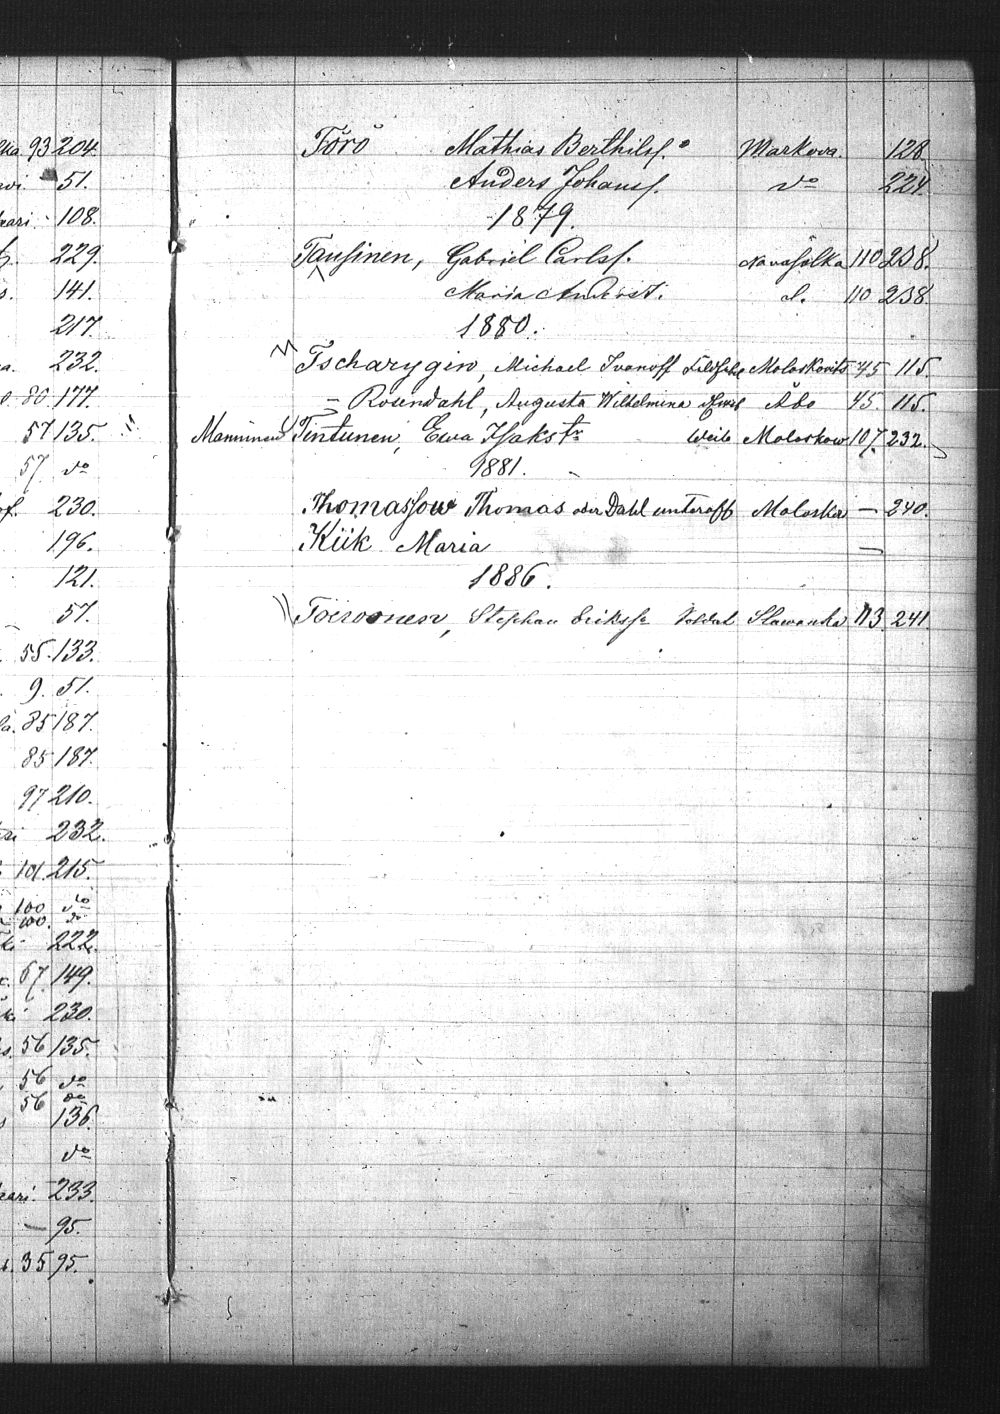 93 204.
51.
108.
229.
141.
217.
232.
80. 177.
57 135.
57. do
230.
196.
121.
57.
55. 133.
9. 51.
85 187.
85 187.
97 210.
232.
101. 215.
100 do
100. do
222.
67. 149.
230.
56 135.
56 do
56 do
136.
do
233.
— 95.
35 95.
Törö Mathias Berthilss. Markova. 128
Anders Johanss. do 224.
1879.
Tausinen, Gabriel Carlss. 110 238.
Maria d. 110 238.
1880.
Tscharygin, Michael Ivanoff Moloskovits 45 115.
= Rosendahl, Augusta Wilhelmina Åbo 45. 115.
Manninen Tintunen, Ewa Isakstr Weib Moloskow 107. 232.
1881.
Thomassow Thomas oder Dahl unteroff Moloskov — 240.
Kiik Maria —
1886.
Toiwonen, Stephan Erikss Soldat Slawanka 113. 241.